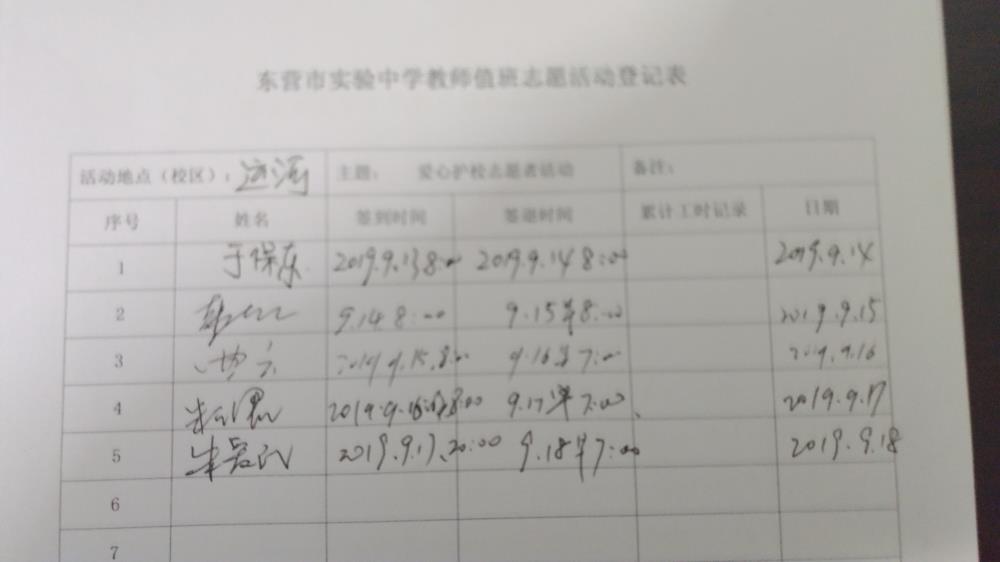 东营市实验中学教师值班志愿活动登记表
活动地点（校区）： 主题： 爱心护校志愿者活动 备注：
序号 姓名 签到时间 签退时间 累计工时记录 日期
1 于保东 2019.9.13 8:00 2019.9.14 8:00 2019.9.14
2 9.14 8:00 9.15 8:00 2019.9.15
3 2019.9.15.8:00 9.16 7:00 2019.9.16
4 2019.9.16 8:00 9.17 7:00 2019.9.17
5 2019.9.17.20:00 9.18 7:00 2019.9.18
6
7